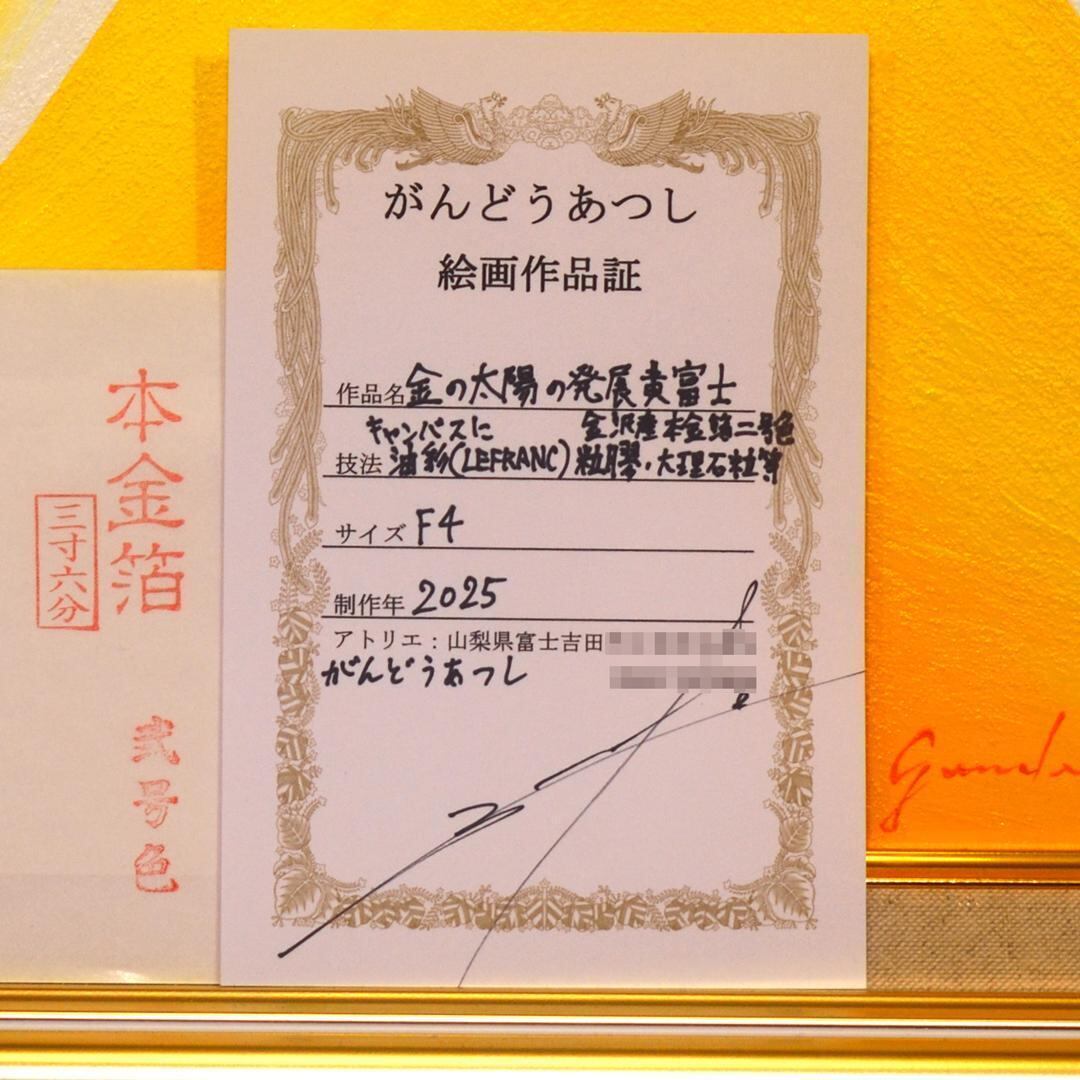 がんどうあつし
絵画作品証
作品名 金の太陽の発展貴富士
キャンバスに 金沢産本金箔二号色
技法 油彩(LEFRANC)粒膠・大理石粒等
サイズ F4
制作年 2025
アトリエ：山梨県富士吉田
がんどうあつし
本金箔
三寸六分
弐号色